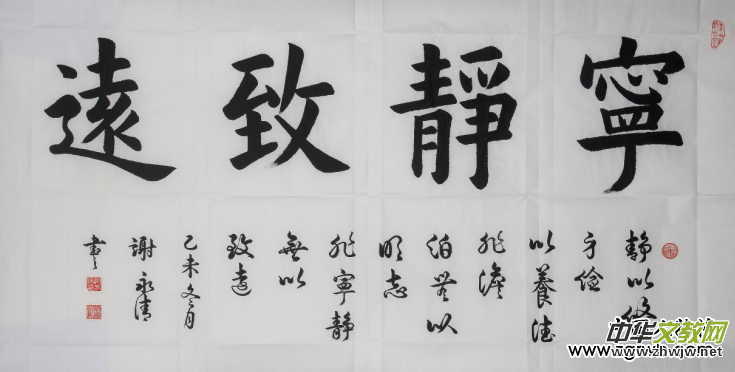 寧靜致遠
静以修
身儉
以養德
非澹
泊無以
明志
非寧静
無以
致遠
乙未冬月
謝永清
書
中华文教网
www.zhwjw.net